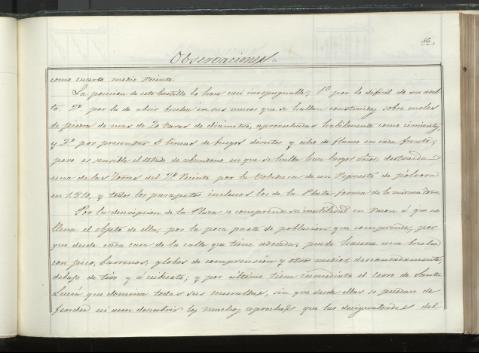 Observaciones
como cuarto medio Oriente.
La posicion de este castillo lo hace casi inexpugnable; 1º por lo dificil de su asal-
to 2º por lo de abrir brecha en sus muros que se hallan construidos sobre moles
de piedra de mas de 20 varas de diametro, aprovechadas habilmente como cimiento,
y 3º por presentar lineas de fuegos directos y de flanco en cada frente;
pero es sensible el estado de abandono en que se halla hace largos años, destruida
una de las Torres del Oriente por la voladura de un Repuesto de polvora
en 1810, y todos los parapetos inclusos los de la Plata forma de la misma Torre.
Por la descripcion de la Plaza se comprende su inutilidad en razon á que no
llena el objeto de ella, por la poca parte de poblacion que comprende, por
que desde cada casa de la calle que tiene adosadas, puede hacerse una brecha
con pico, barrenos, globos de compresion y otros medios, descansadamente,
debajo de tiro y á cubierto; y por ultimo tiene inmediato el cerro de Santa
Lucia que domina todas sus murallas, sin que desde ellas se puedan de-
fender ni aun descubrir los muchos aproches que las desigualdades del